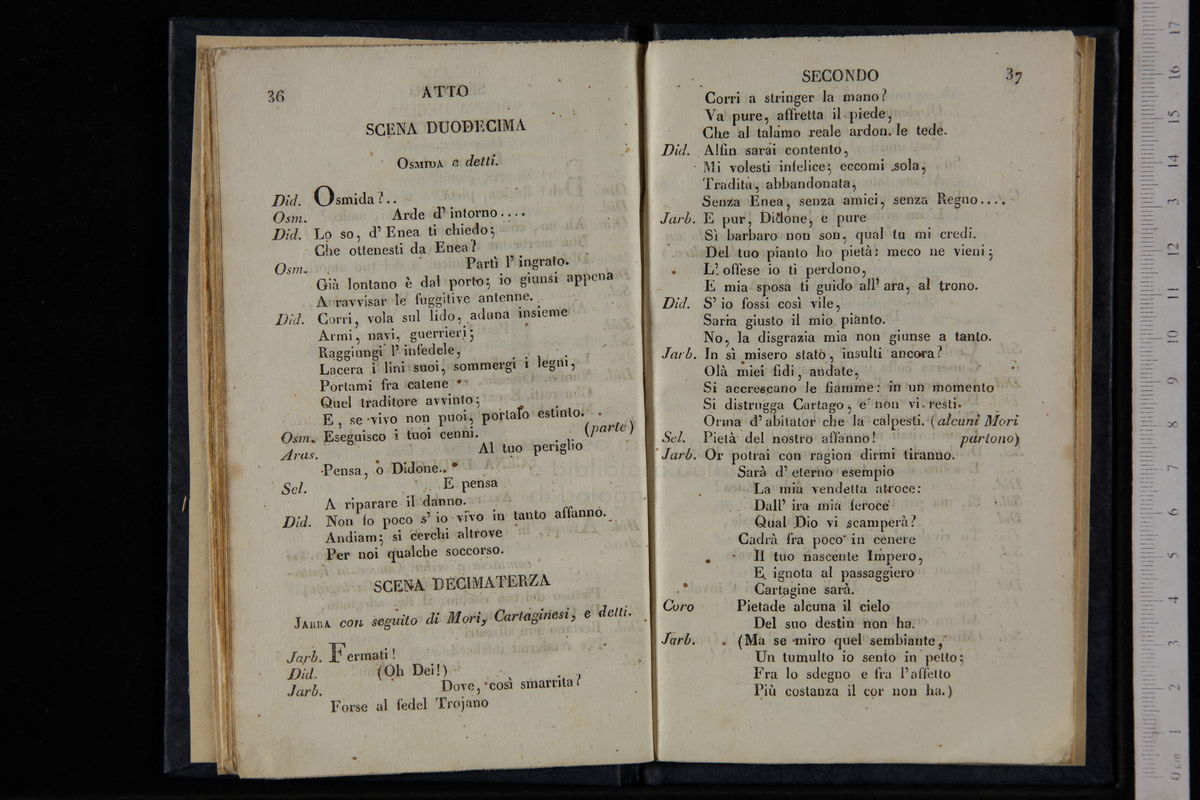 36 ATTO
SCENA DUODECIMA
OSMIDA e detti.
Did. Osmida?..
Osm. Arde d' intorno....
Did. Lo so, d' Enea ti chiedo;
Che ottenesti da Enea?
Osm. Partì l' ingrato.
Già lontano è dal porto; io giunsi appena
A ravvisar le fuggitive antenne.
Did. Corri, vola sul lido, aduna insieme
Armi, navi, guerrieri;
Raggiungi l' infedele,
Lacera i lini suoi, sommergi i legni,
Portami fra catene
Quel traditore avvinto;
E, se vivo non puoi, portalo estinto.
Osm. Eseguisco i tuoi cenni. (parte)
Aras. Al tuo periglio
Pensa, o Didone..
Sel. E pensa
A riparare il danno.
Did. Non fo poco s' io vivo in tanto affanno.
Andiam; si cerchi altrove
Per noi qualche soccorso.
SCENA DECIMATERZA
JARBA con seguito di Mori, Cartaginesi, e detti.
Jarb. Fermati!
Did. (Oh Dei!)
Jarb. Dove, così smarrita?
Forse al fedel Trojano
SECONDO 37
Corri a stringer la mano?
Va pure, affretta il piede,
Che al talamo reale ardon le tede.
Did. Alfin sarai contento,
Mi volesti infelice; eccomi sola,
Tradita, abbandonata,
Senza Enea, senza amici, senza Regno....
Jarb. E pur, Didone, e pure
Sì barbaro non son, qual tu mi credi.
Del tuo pianto ho pietà: meco ne vieni;
L' offese io ti perdono,
E mia sposa ti guido all' ara, al trono.
Did. S' io fossi così vile,
Saria giusto il mio pianto.
No, la disgrazia mia non giunse a tanto.
Jarb. In sì misero stato, insulti ancora?
Olà miei fidi, andate,
Si accrescano le fiamme: in un momento
Si distrugga Cartago, e non vi resti
Orma d' abitator che la calpesti. (alcuni Mori
Sel. Pietà del nostro affanno! partono)
Jarb. Or potrai con ragion dirmi tiranno.
Sarà d' eterno esempio
La mia vendetta atroce:
Dall' ira mia feroce
Qual Dio vi scamperà?
Cadrà fra poco in cenere
Il tuo nascente Impero,
E ignota al passaggiero
Cartagine sarà.
Coro Pietade alcuna il cielo
Del suo destin non ha.
Jarb. (Ma se miro quel sembiante,
Un tumulto io sento in petto;
Fra lo sdegno e fra l'affetto
Più costanza il cor non ha.)